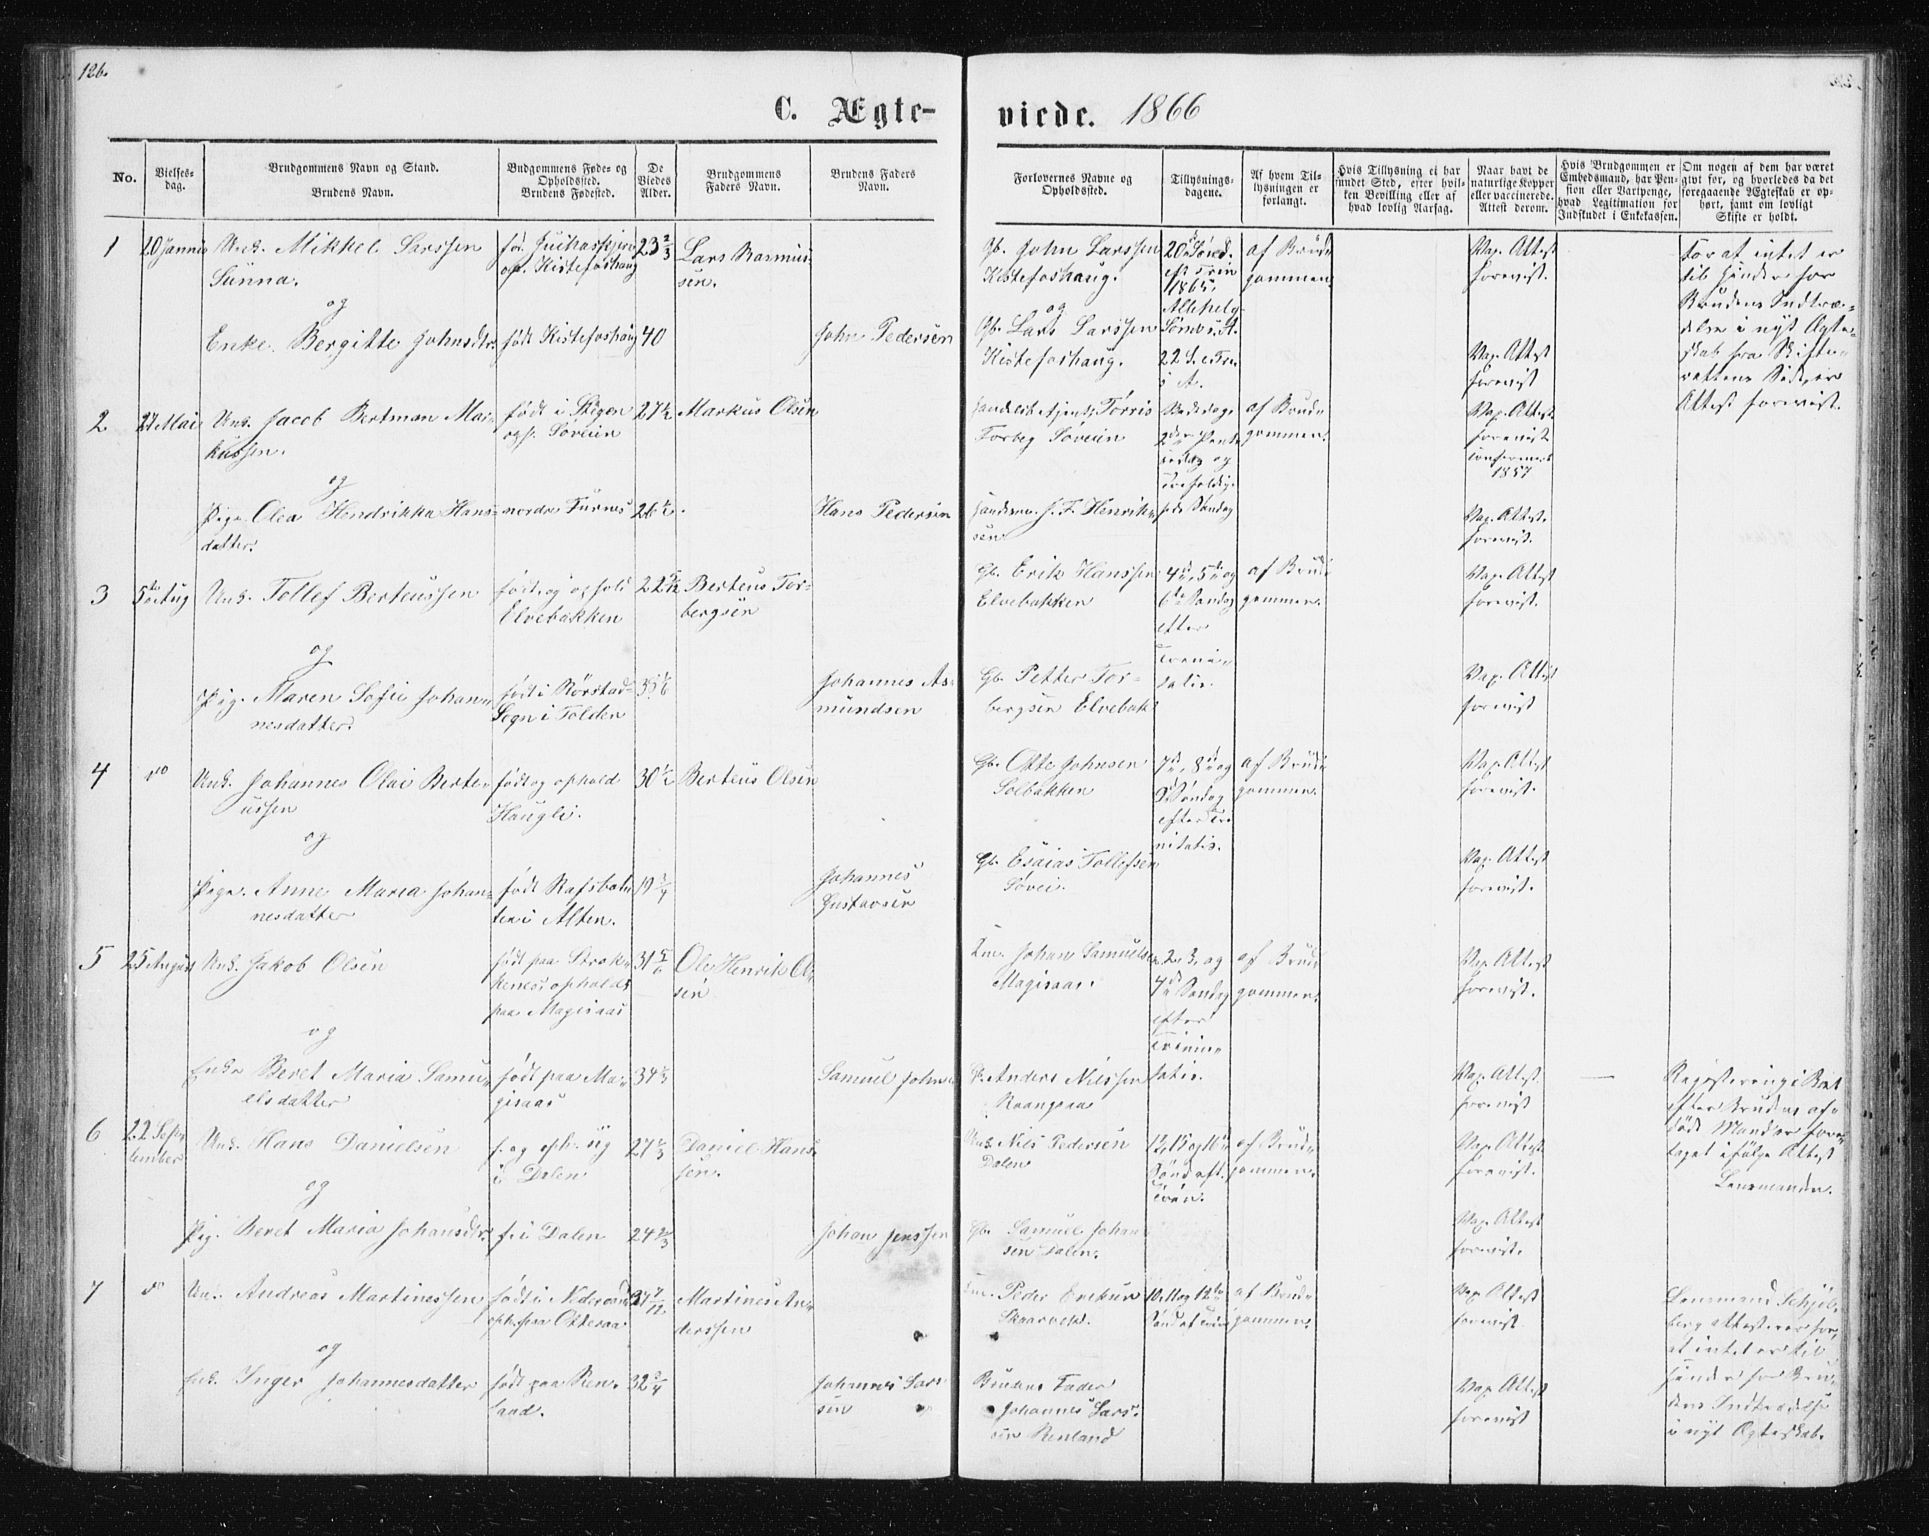 126.
C. Ægte-
viede. 1866
No.
Vielses-
dag.
Brudgommens Navn og Stand.
Brudens Navn.
Budgommens Føde- og
Opholdssted.
Brudens Fødested.
De
Viedes
Alder.
Brudgommens
Faders Navn.
Brudens Faders
Navn.
Forlovernes Navne og
Opholdssted.
Tillysnings-
dagene.
Af hvem Til-
lysningen er
forlangt.
Hvis Tillysning ei har
fundet Sted, efter hvil-
ken Bevilling eller af
hvad lovlig Aarsag.
Naar havt de
naturlige Kopper
eller vaccinerede.
Attest derom.
Hvis Brudgommen er
Embedsmand, har Pen-
sion eller Vartpenge,
hvad Legitimation for
Indskudet i Enkekassen.
Om nogen af dem har været
givt før, og hvorledes da det
foregaaende Ægteskab er op-
hørt, samt om lovligt
Skifte er holdt.
1
Unk. Mikkel Larssen
Sunna.
og
Enke. Bergitte Johnsdtr.
oph. Kistefoshaug
født Kistefoshaug
23 2/3
40
Lars Rasmus-
sen.
John Pedersen
Gb. John Larssen
Kistefoshaug.
og
Gb. Lars Larssen
Kistefoshaug.
20de Sønd.
eft Trin
1865,
Allehelg.
22 S. e. Tr.
af Brud-
gommen.
Vax. Attest
forevist.
Vax. Attest
forevist
For at intet er
til Hinder for
Brudens Indtræ-
delse i nyt Ægte-
skab fra Skifte-
rettens Side, er
Attest forevist.
2
27 Mai
Unk. Jacob Bertman Mar-
kussen.
og
Pige Olea Hendrikka Hans-
datter.
født i Stegen
oph. Søveien
nordre Furnes
27 1/2
26 1/2
Markus Olsen
Hans Pedersen
Tørris
Forbeg Søveien
Handelsm. J. F. Henrik-
sen
Bededag,
2den Pent-
og
Trefoldig-
heds Søndag
af Brud-
gommen.
Vax. Attest.
forevist
confirmert
1857
Vax. Attest.
forevist.
3
5te Aug
Unk. Tollef Berteussen
og
Pige. Maren Sofie Johan-
nesdatter.
født og ophold
Elvebakken
født i Rørstad
Sogn i Folden
Berteus Tor-
bergsen
Johannes As-
mundsen
Gb. Erik Hanssen
Elvebakken
Gb. Petter Tor-
bergsen Elvebak
4de, 5te og
6te Søndag
efter
Treni-
tatis.
af Brud-
gommen.
Vax. Attest
forevist.
Vax. Attest
forevist
4
do
Unk. Johannes Olai Berte-
ussen
og
Pige. Anne Maria Johan-
nesdatter
født og ophold
Haugli.
født Rafsbotn
ten i Alten.
30 1/2
19 3/4
Berteus Olsen
Johannes
Gustavsen
Gb. Otte Johnsen
Solbakken
Gb. Esaias Tollefsen
Søvei.
7de, 8de og
9de Søndag
efter Tri
nitatis.
af Brud-
gommen.
Vax. Attest
forevist.
Vax. Attest
forevist.
5
25 August
Unk. Jakob Olsen
og
Enke Beret Maria Samu-
elsdatter
født paa Strak-
kenes, opholds
paa Magisaas
født paa Ma-
gisaas
Ole Henrik Ol-
sen
Samuel Johns
Johan Samuelsen
Magisaas.
P. Anders Nilssen
2. 3. og
4de Søndag
efter
Trini-
tatis.
af Brud-
gommen.
Vax. Attest
forevist.
Vax. Attest
forevist
Registrering i Boet
efter Brudens af-
døde Mand er fore-
taget ifølge Attest
Lensmanden.
6
22 Sep-
tember
Unk. Hans Danielsen
og
Pig. Beret Maria Johansdtr.
f. og oph. sig
i Dalen
f. i Dalen
Daniel Hans-
sen.
Johan Jenssen
Unk. Nils Pedersen
Dalen
Gb. Samuel Johan
sen Dalen.
Sønd eft.
Trin.
af Brud-
gommen.
Vax. Attest
forevist.
Vax. Attest
forevist.
7
do
Unk. Andreas Martinessen
og
Enk. Inger Johannesdatter
oph. paa Otteraa
født paa Ren-
land.
37 7/12
32 3/4
Martines An-
derssen
Johannes Lars
sen
Peder Eriksen
Skaarvik.
Brudens Fader
Johannes Lars-
sen Renland
10. 11 og 12te
Sønd ef Trin
af Brud-
gommen.
Vax. Attest
forevist.
Vax Attest
forevist
Lensmand Schjel-
berg attesterer for,
at intet er til
Hinder for Bru-
dens Indtrædelse
i nyt Ægteskab.